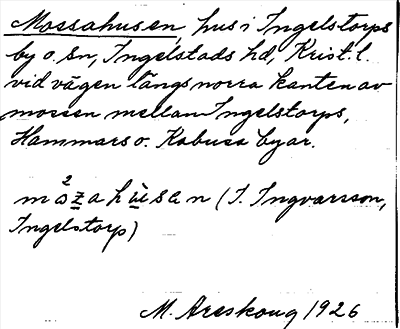 Mossahusen, hus i Ingelstorps
by o. sn, Ingelstads hd, Krist. l.
vid vägen längs norra kanten av
mossen mellan Ingelstorps,
Hammars o. Kabusa byar.
(I. Ingvarsson,
Ingelstorp)
M. Areskoug 1926